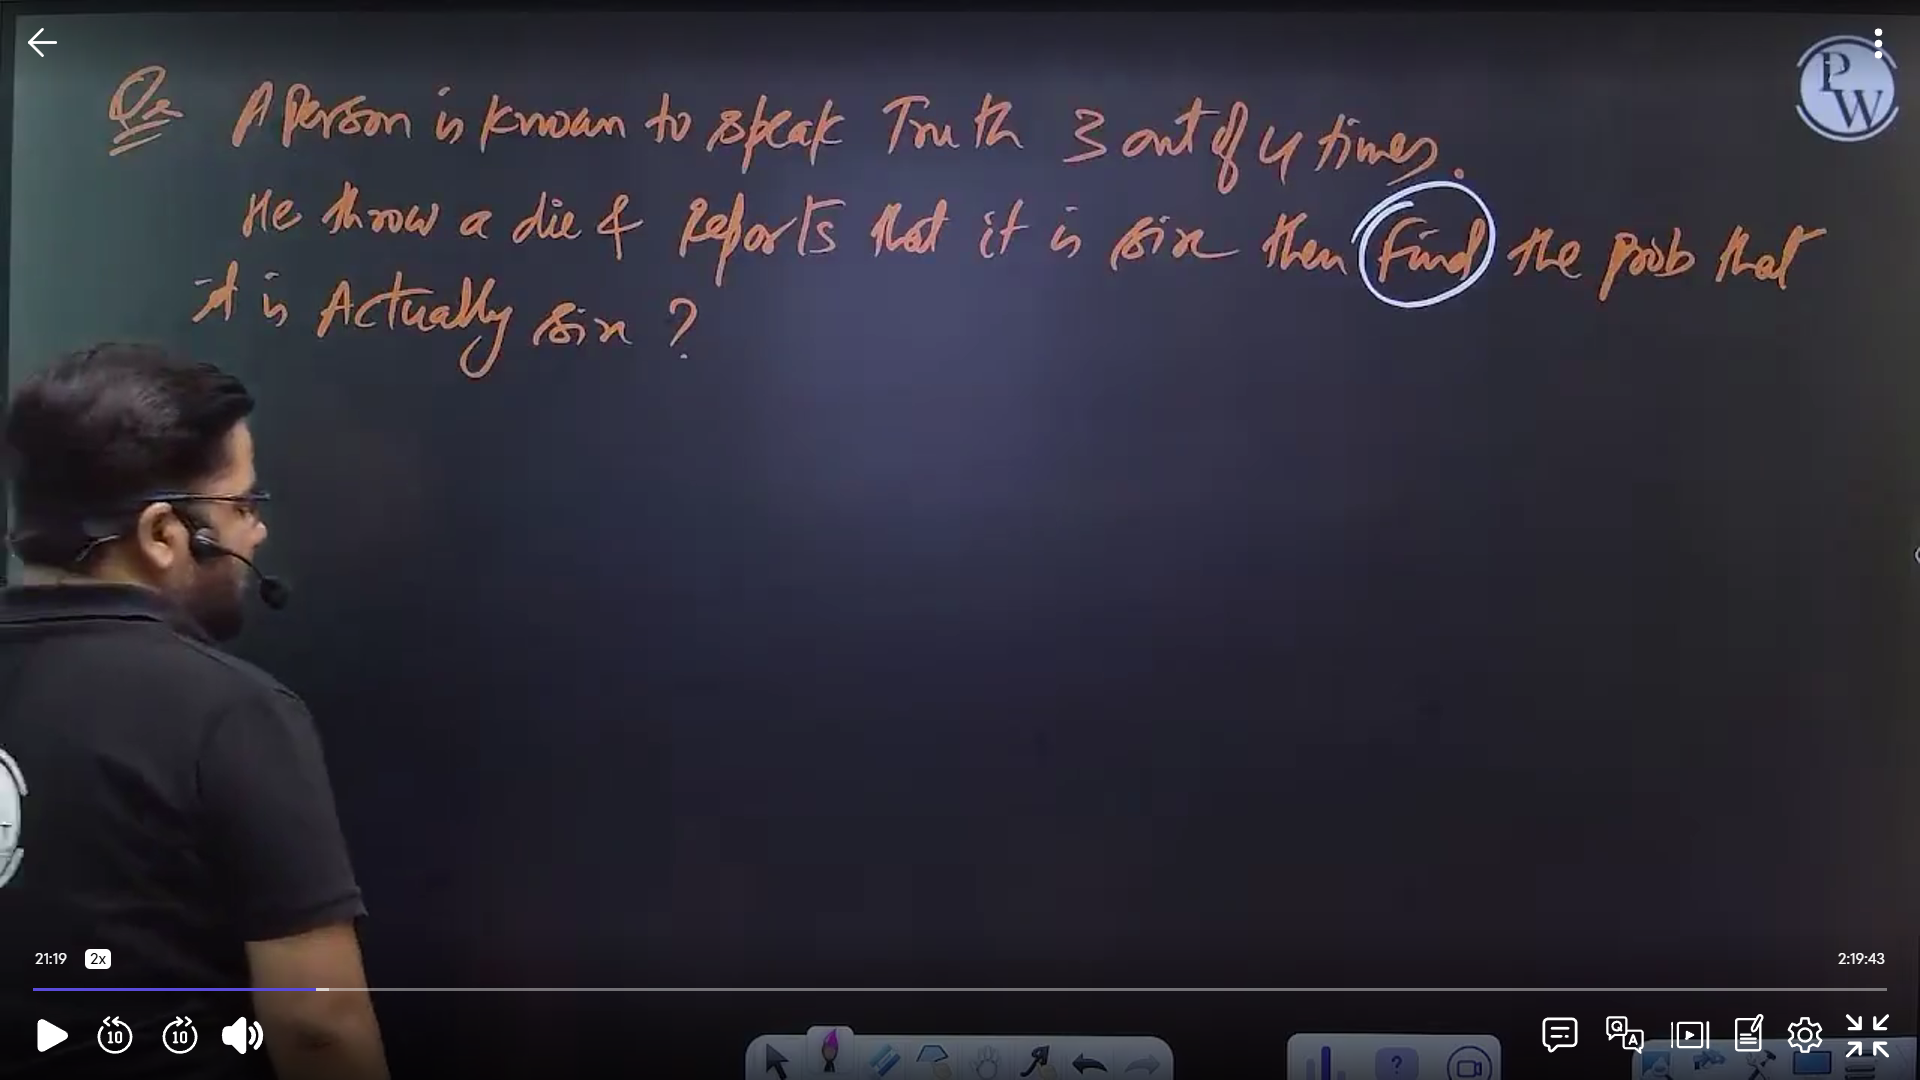 Qs A Person is known to speak Truth 3 out of 4 times.
He throw a die & Reports that it is six then find the prob that
it is Actually six ?
PW
21:19 2x 2:19:43
10 10